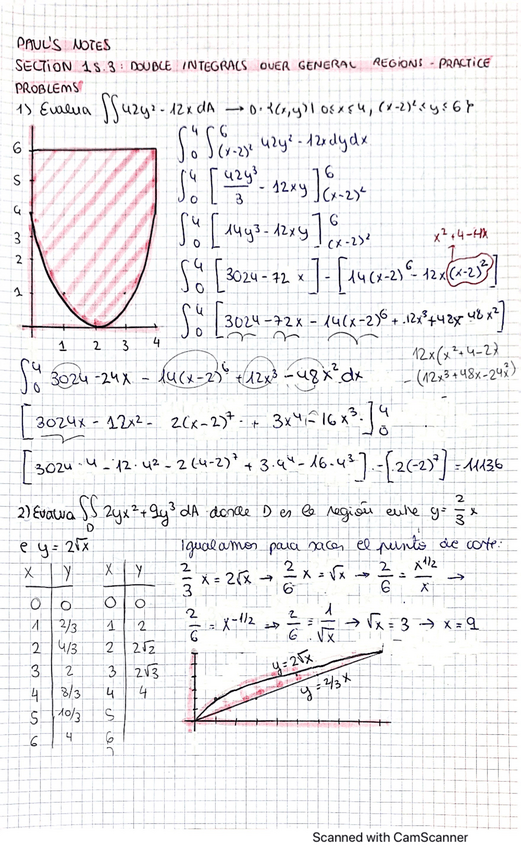 PAUL'S NOTES
SECTION 15.3: DOUBLE INTEGRALS OVER GENERAL REGIONS - PRACTICE
PROBLEMS
1) Evalua ∬ 42y² - 12x dA → D = {(x,y) | 0≤x≤4, (x-2)² ≤ y ≤ 6}
6
5
4
3
2
1
1 2 3 4
∫₀⁴ ∫_{(x-2)²}^6 42y² - 12x dy dx
∫₀⁴ [42y³/3 - 12xy]_{(x-2)²}^6
∫₀⁴ [14y³ - 12xy]_{(x-2)²}^6
x² + 4 - 4x
∫₀⁴ [3024 - 72x] - [14(x-2)⁶ - 12x(x-2)²]
∫₀⁴ [3024 - 72x - 14(x-2)⁶ + 12x³ + 48x - 48x²]
12x(x² + 4 - 2)
- (12x³ + 48x - 24x²)
∫₀⁴ 3024 - 24x - 14(x-2)⁶ + 12x³ - 48x² dx
[3024x - 12x² - 2(x-2)⁷ + 3x⁴ - 16x³]₀⁴
[3024·4 - 12·4² - 2(4-2)⁷ + 3·4⁴ - 16·4³] - [2(-2)⁷] = 11136
2) Evalua ∬_D 2yx² + 9y³ dA donde D es la región entre y = 2/3 x
e y = 2√x
Igualamos para sacar el punto de corte:
2/3 x = 2√x → 2/6 x = √x → 2/6 = x^{1/2}/x →
2/6 = x^{-1/2} → 2/6 = 1/√x → √x = 3 → x = 9
x y x y
0 0 0 0
1 2/3 1 2
2 4/3 2 2√2
3 2 3 2√3
4 8/3 4 4
5 10/3 5
6 4 6
y = 2√x
y = 2/3 x
Scanned with CamScanner